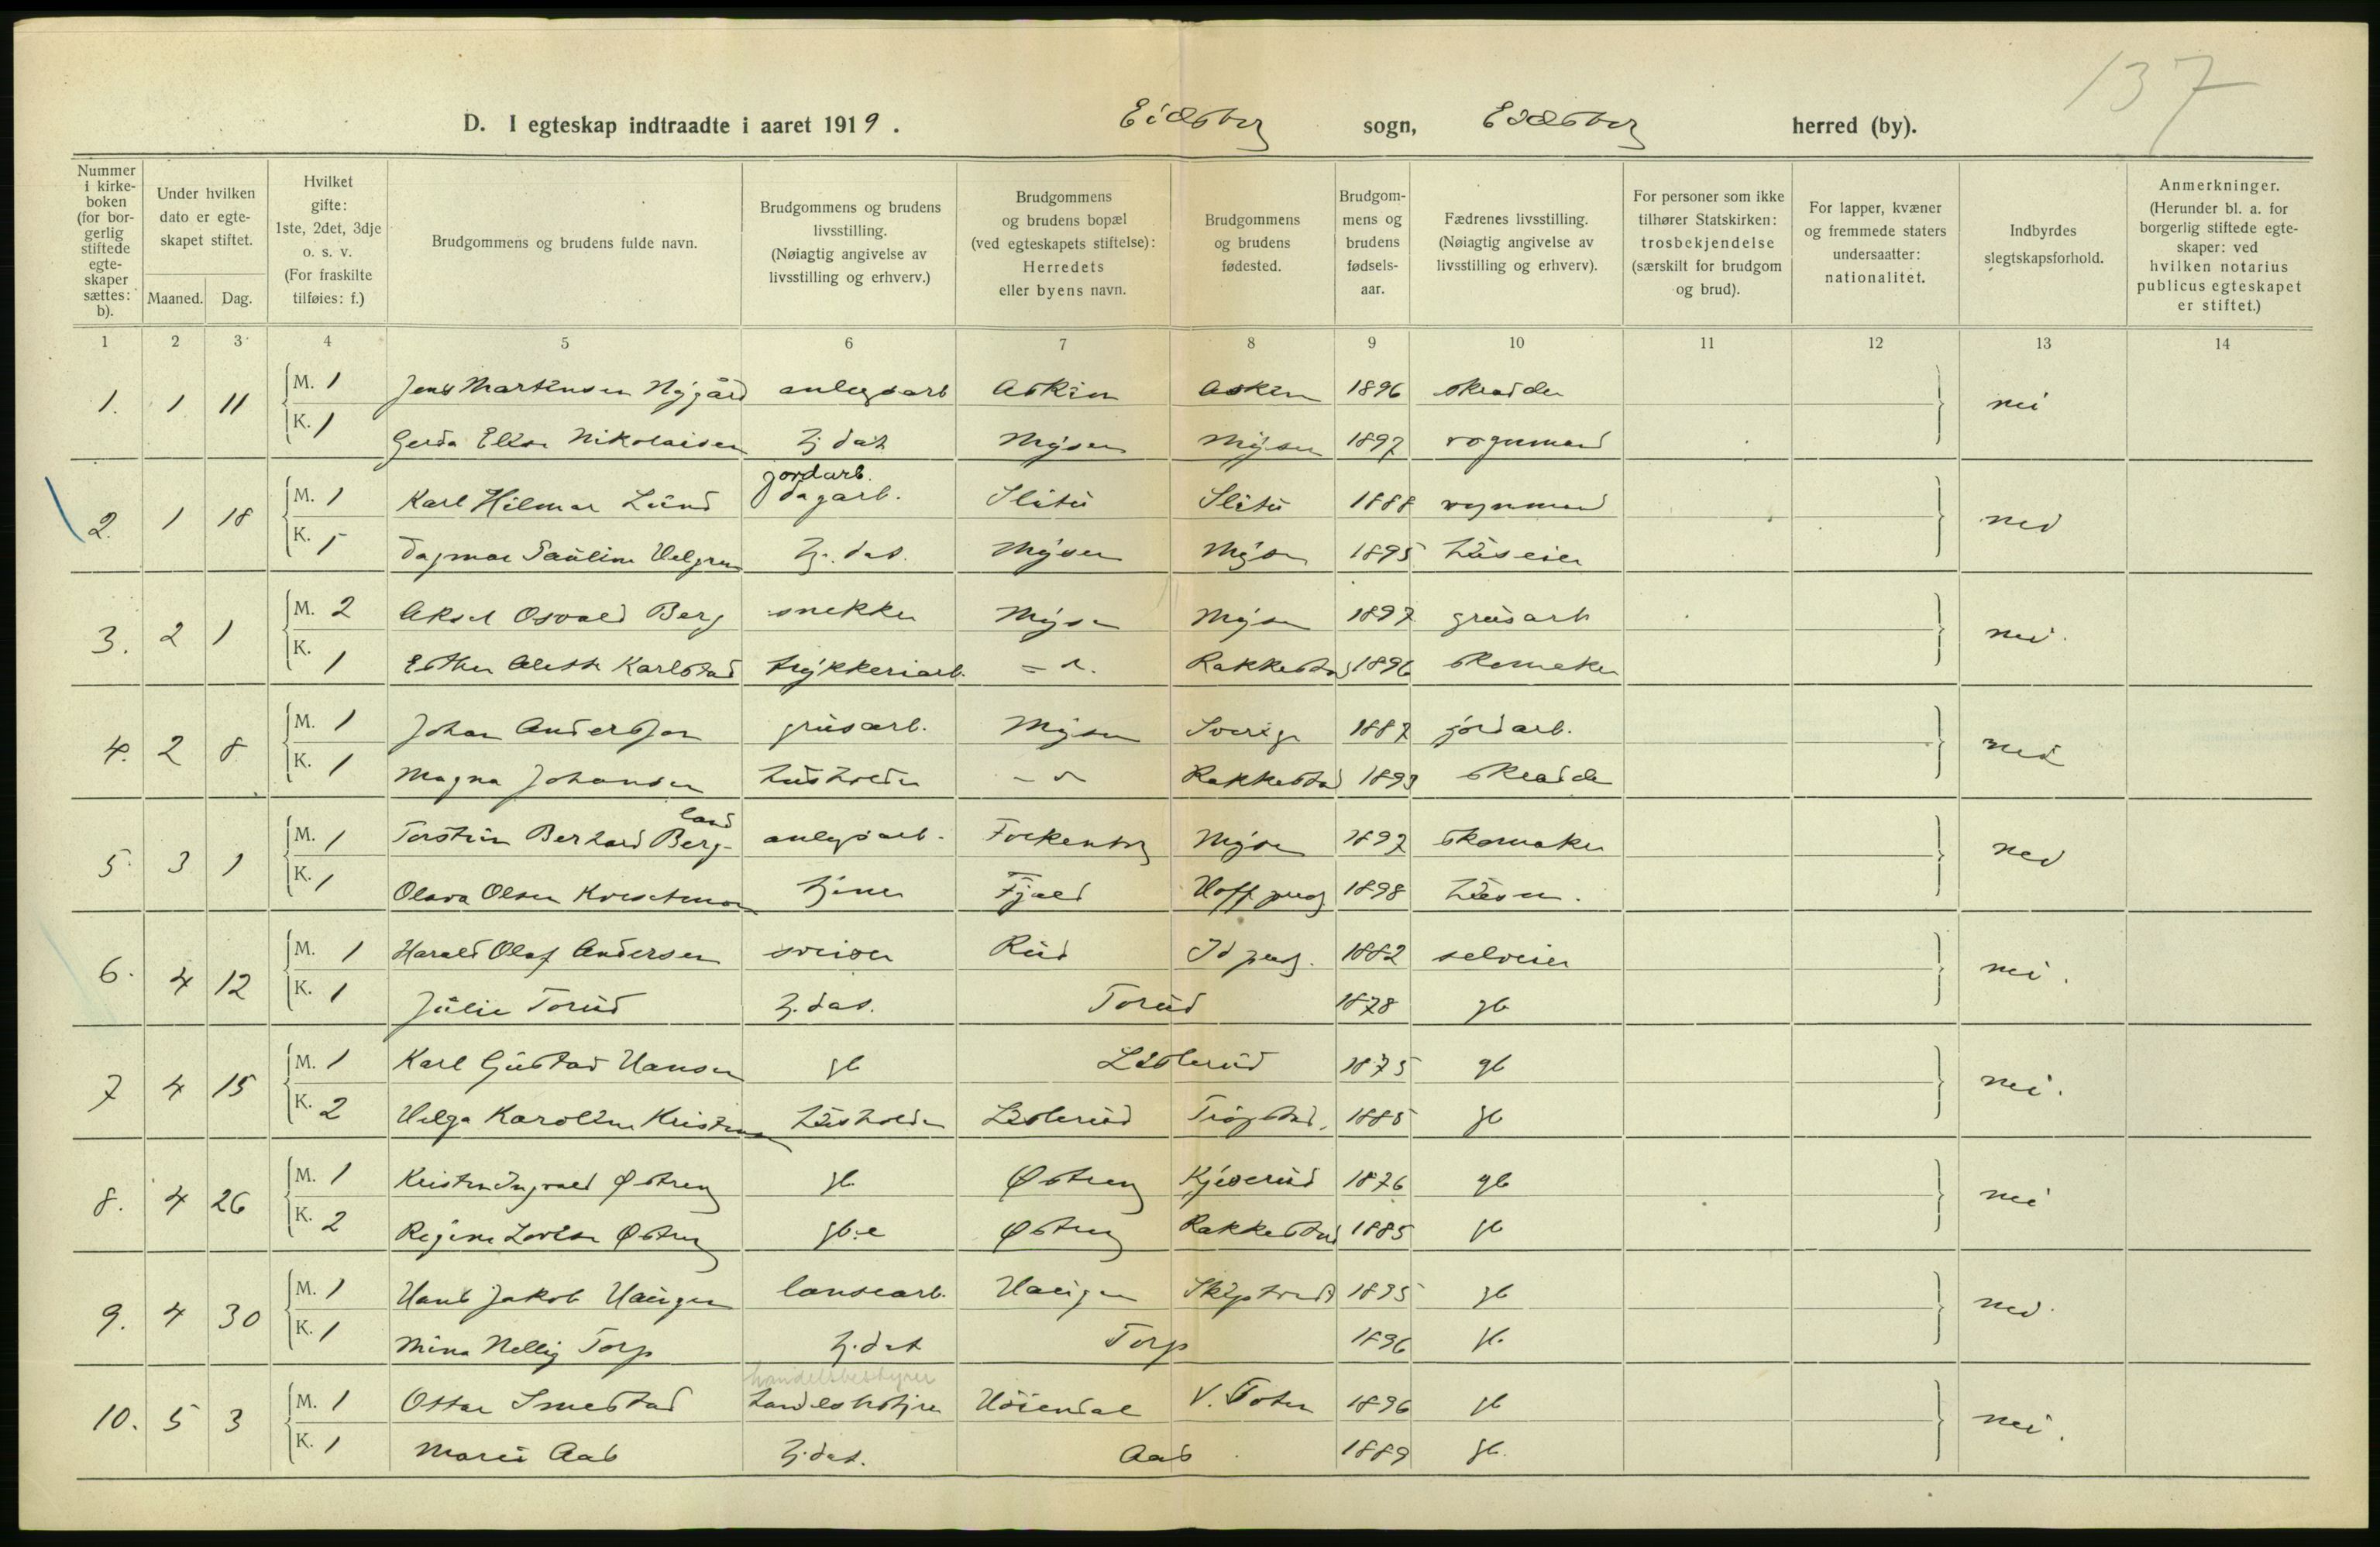 137
D. I egteskap indtraadte i aaret 1919. Eidsberg sogn, Eidsberg herred (by).
Nummer i kirke-boken (for bor-gerlig stiftede egte-skaper sættes: b).
Under hvilken dato er egte-skapet stiftet.
Maaned. Dag.
Hvilket gifte: 1ste, 2det, 3dje o. s. v. (For fraskilte tilføies: f.)
Brudgommens og brudens fulde navn.
Brudgommens og brudens livsstilling. (Nøiagtig angivelse av livsstilling og erhverv.)
Brudgommens og brudens bopæl (ved egteskapets stiftelse): Herredets eller byens navn.
Brudgommens og brudens fødested.
Brudgom-mens og brudens fødsels-aar.
Fædrenes livsstilling. (Nøiagtig angivelse av livsstilling og erhverv).
For personer som ikke tilhører Statskirken: trosbekjendelse (særskilt for brudgom og brud).
For lapper, kvæner og fremmede staters undersaatter: nationalitet.
Indbyrdes slegtskapsforhold.
Anmerkninger. (Herunder bl. a. for borgerlig stiftede egte-skaper: ved hvilken notarius publicus egteskapet er stiftet.)
1 2 3 4 5 6 7 8 9 10 11 12 13 14
1. 1 11 M. 1 Jens Martinsen Nygård anlegsarb Askim Askim 1896 skrædder nei
K. 1 Gerda Elise Nikolaisen hj. dat Mysen Mysen 1897 vognmand
jordarb.
2. 1 18 M. 1 Karl Hilmar Lund dagarb. Slitu Slitu 1888 vognmand nei
K. 1 Dagmar Pauline Helgren hj. dat. Mysen Mysen 1895 huseier
3. 2 1 M. 2 Aksel Osvald Berg snekker Mysen Mysen 1897 grusarb nei.
K. 1 Esther Aleth Karlstad trykkeriarb. Rakkestad 1896 skomaker
4. 2 8 M. 1 Johan Andersson grusarb. Mysen Sverige 1887 jordarb. nei
K. 1 Magna Johansen husholder Rakkestad 1893 skrædder
land
5. 3 1 M. 1 Torstein Berhard Berg- anlegsarb. Folkenborg Mysen 1897 skomaker nei
K. 1 Olava Olsen tjener Fjeld Hoff pregj 1898 husm.
6. 4 12 M. 1 Harald Olaf Andersen sveiser Rud Id pregj. 1882 selveier nei.
K. 1 Julie Torud hj. dat. Torud 1878 gb
7 4 15 M. 1 Karl Gustav Hansen gb Lislerud 1875 gb nei.
K. 2 Helga Karoline Kristensen husholder Lislerud Trøgstad. 1885 gb
8. 4 26 M. 1 Kristen Ingvald Østreng gb Østreng Kjiserud 1876 gb nei
K. 2 Regine Lovise Østreng gb.e Østreng Rakkestad 1885 gb
9. 4 30 M. 1 Hans Jakob Haugen Haugen Skiptvedt 1895 gb nei.
K. 1 Mina Nelly Torp hj. dat Torp 1896 gb.
handelsbestyrer
10. 5 3 M. 1 Ottar Smestad handelsbstyrer Høiendal V. Toten 1896 gb nei.
K. 1 Marie Aas hj. dat. Aas 1889 gb.